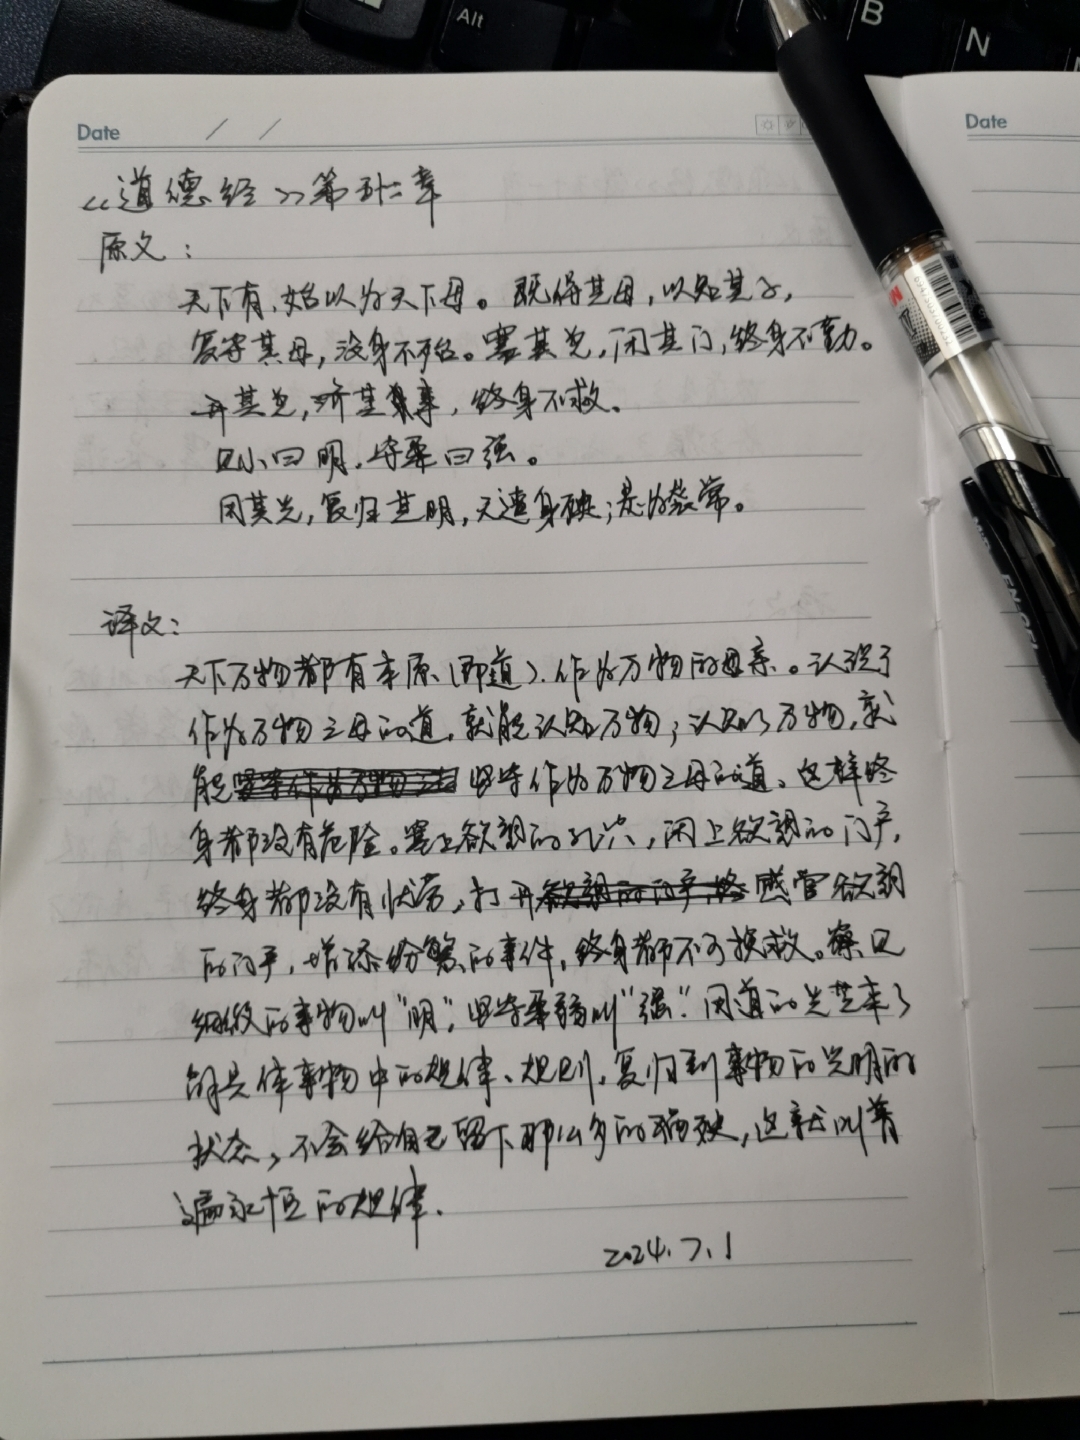 Alt
B
N
Date / /
Date
《道德经》第五十二章
原文：
天下有始，以为天下母。既得其母，以知其子，
复守其母，没身不殆。塞其兑，闭其门，终身不勤。
开其兑，济其事，终身不救。
见小曰明，守柔曰强。
用其光，复归其明，无遗身殃；是为袭常。
译文：
天下万物都有本原（即道），作为万物的母亲。认识了
作为万物之母的道，就能认知万物；认知了万物，就
能坚守作为万物之母的道。这样终
身都没有危险。塞上欲望的孔穴，闭上欲望的门户，
终身都没有忧劳，打开感官欲望
的门户，增添纷繁的事件，终身都不可挽救。察见
细微的事物叫“明”，坚守柔弱叫“强”。用道的光芒来了
解具体事物中的规律、规则，复归到事物的光明的
状态，不会给自己留下那么多的祸殃，这就叫普
遍永恒的规律．
2024.7.1